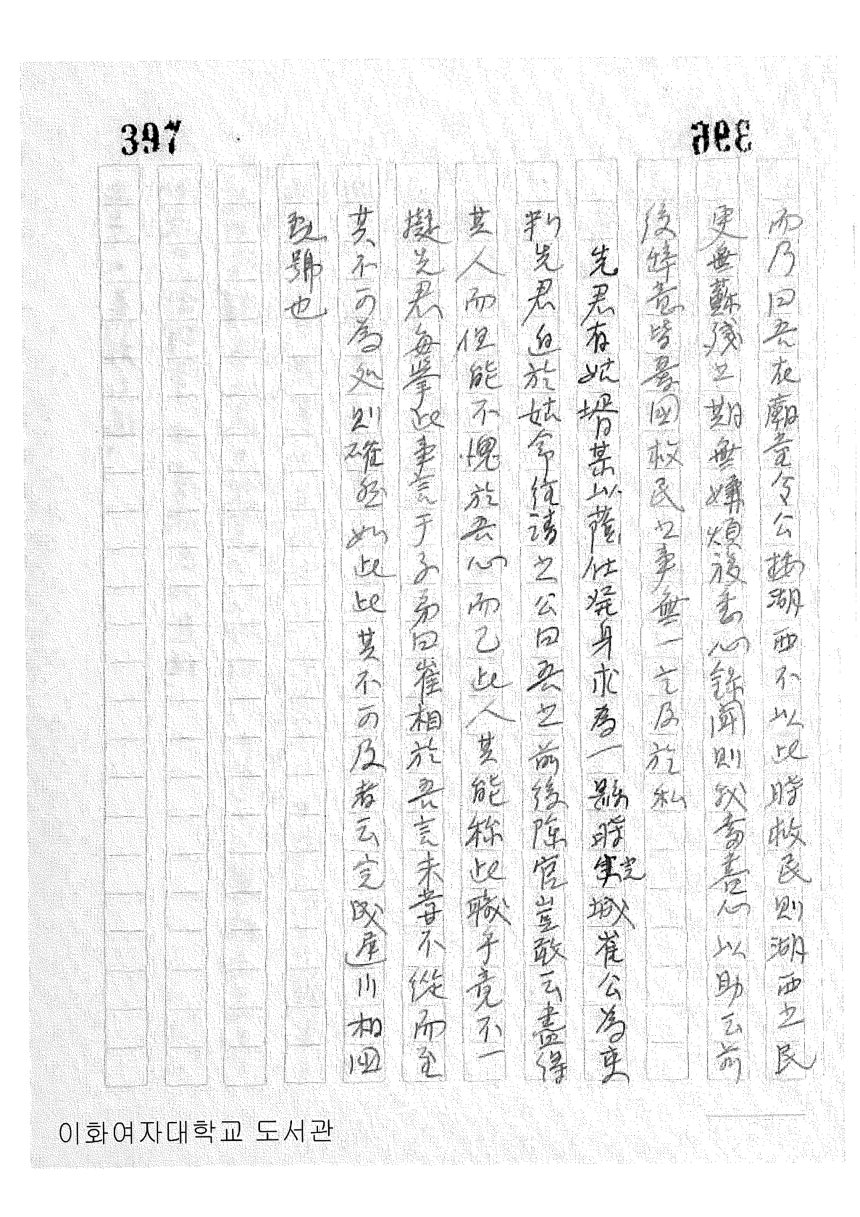 397
396
而乃曰吾在廟堂令公按湖西不以此時救民則湖西之民
更無蘇殘之期無嫌煩複悉心錄聞則我當盡心以助云前
後辭意皆憂國救民之事無一言及於私
先君有姑壻某以蔭仕發身求爲一縣時完城崔公爲吏
判先君迫於姑令往請之公曰吾之前後除官豈敢云盡得
其人而但能不愧於吾心而已此人其能稱此職乎竟不一
擬先君每擧此事言于子弟曰崔相於吾言未嘗不從而至
其不可為処則確然如此此其不可及者云完城遲川相國
號也
이화여자대학교 도서관